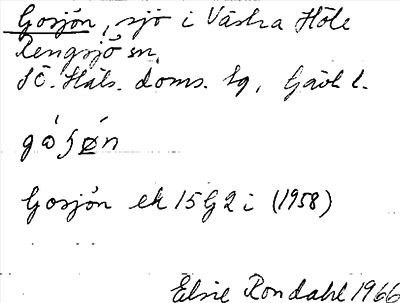 Gosjön, sjö i Västra Höle
Rengsjö sn,
SÖ. Häls. doms. tg, Gävl l.
gωʹʃøn
Gosjön ek 15 G 2 i (1958)
Elsie Rondahl 1966